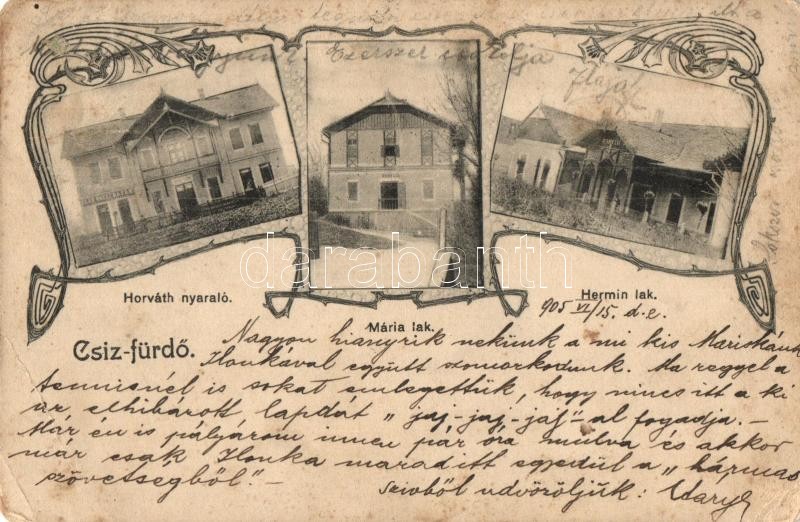 Ezerszer csókolja
Horváth nyaraló.
Mária lak.
Hermin lak.
905 VI/15. d.e.
Csiz-fürdő.
Nagyon hianyzik nekünk a mi kis Mariskánk
Ilonkával együtt szomorkodunk. Ma reggel a
tennisnél is sokat emlegettük, hogy nincs itt a ki
az elhibázott lapdát „jaj-jaj-jaj"-al fogadja.—
Már én is pályázom innen pár óra mulva és akkor
már csak Ilonka marad itt egyedül a „hármas
szövetségből."—
Szivből udvözöljük:
darabanth